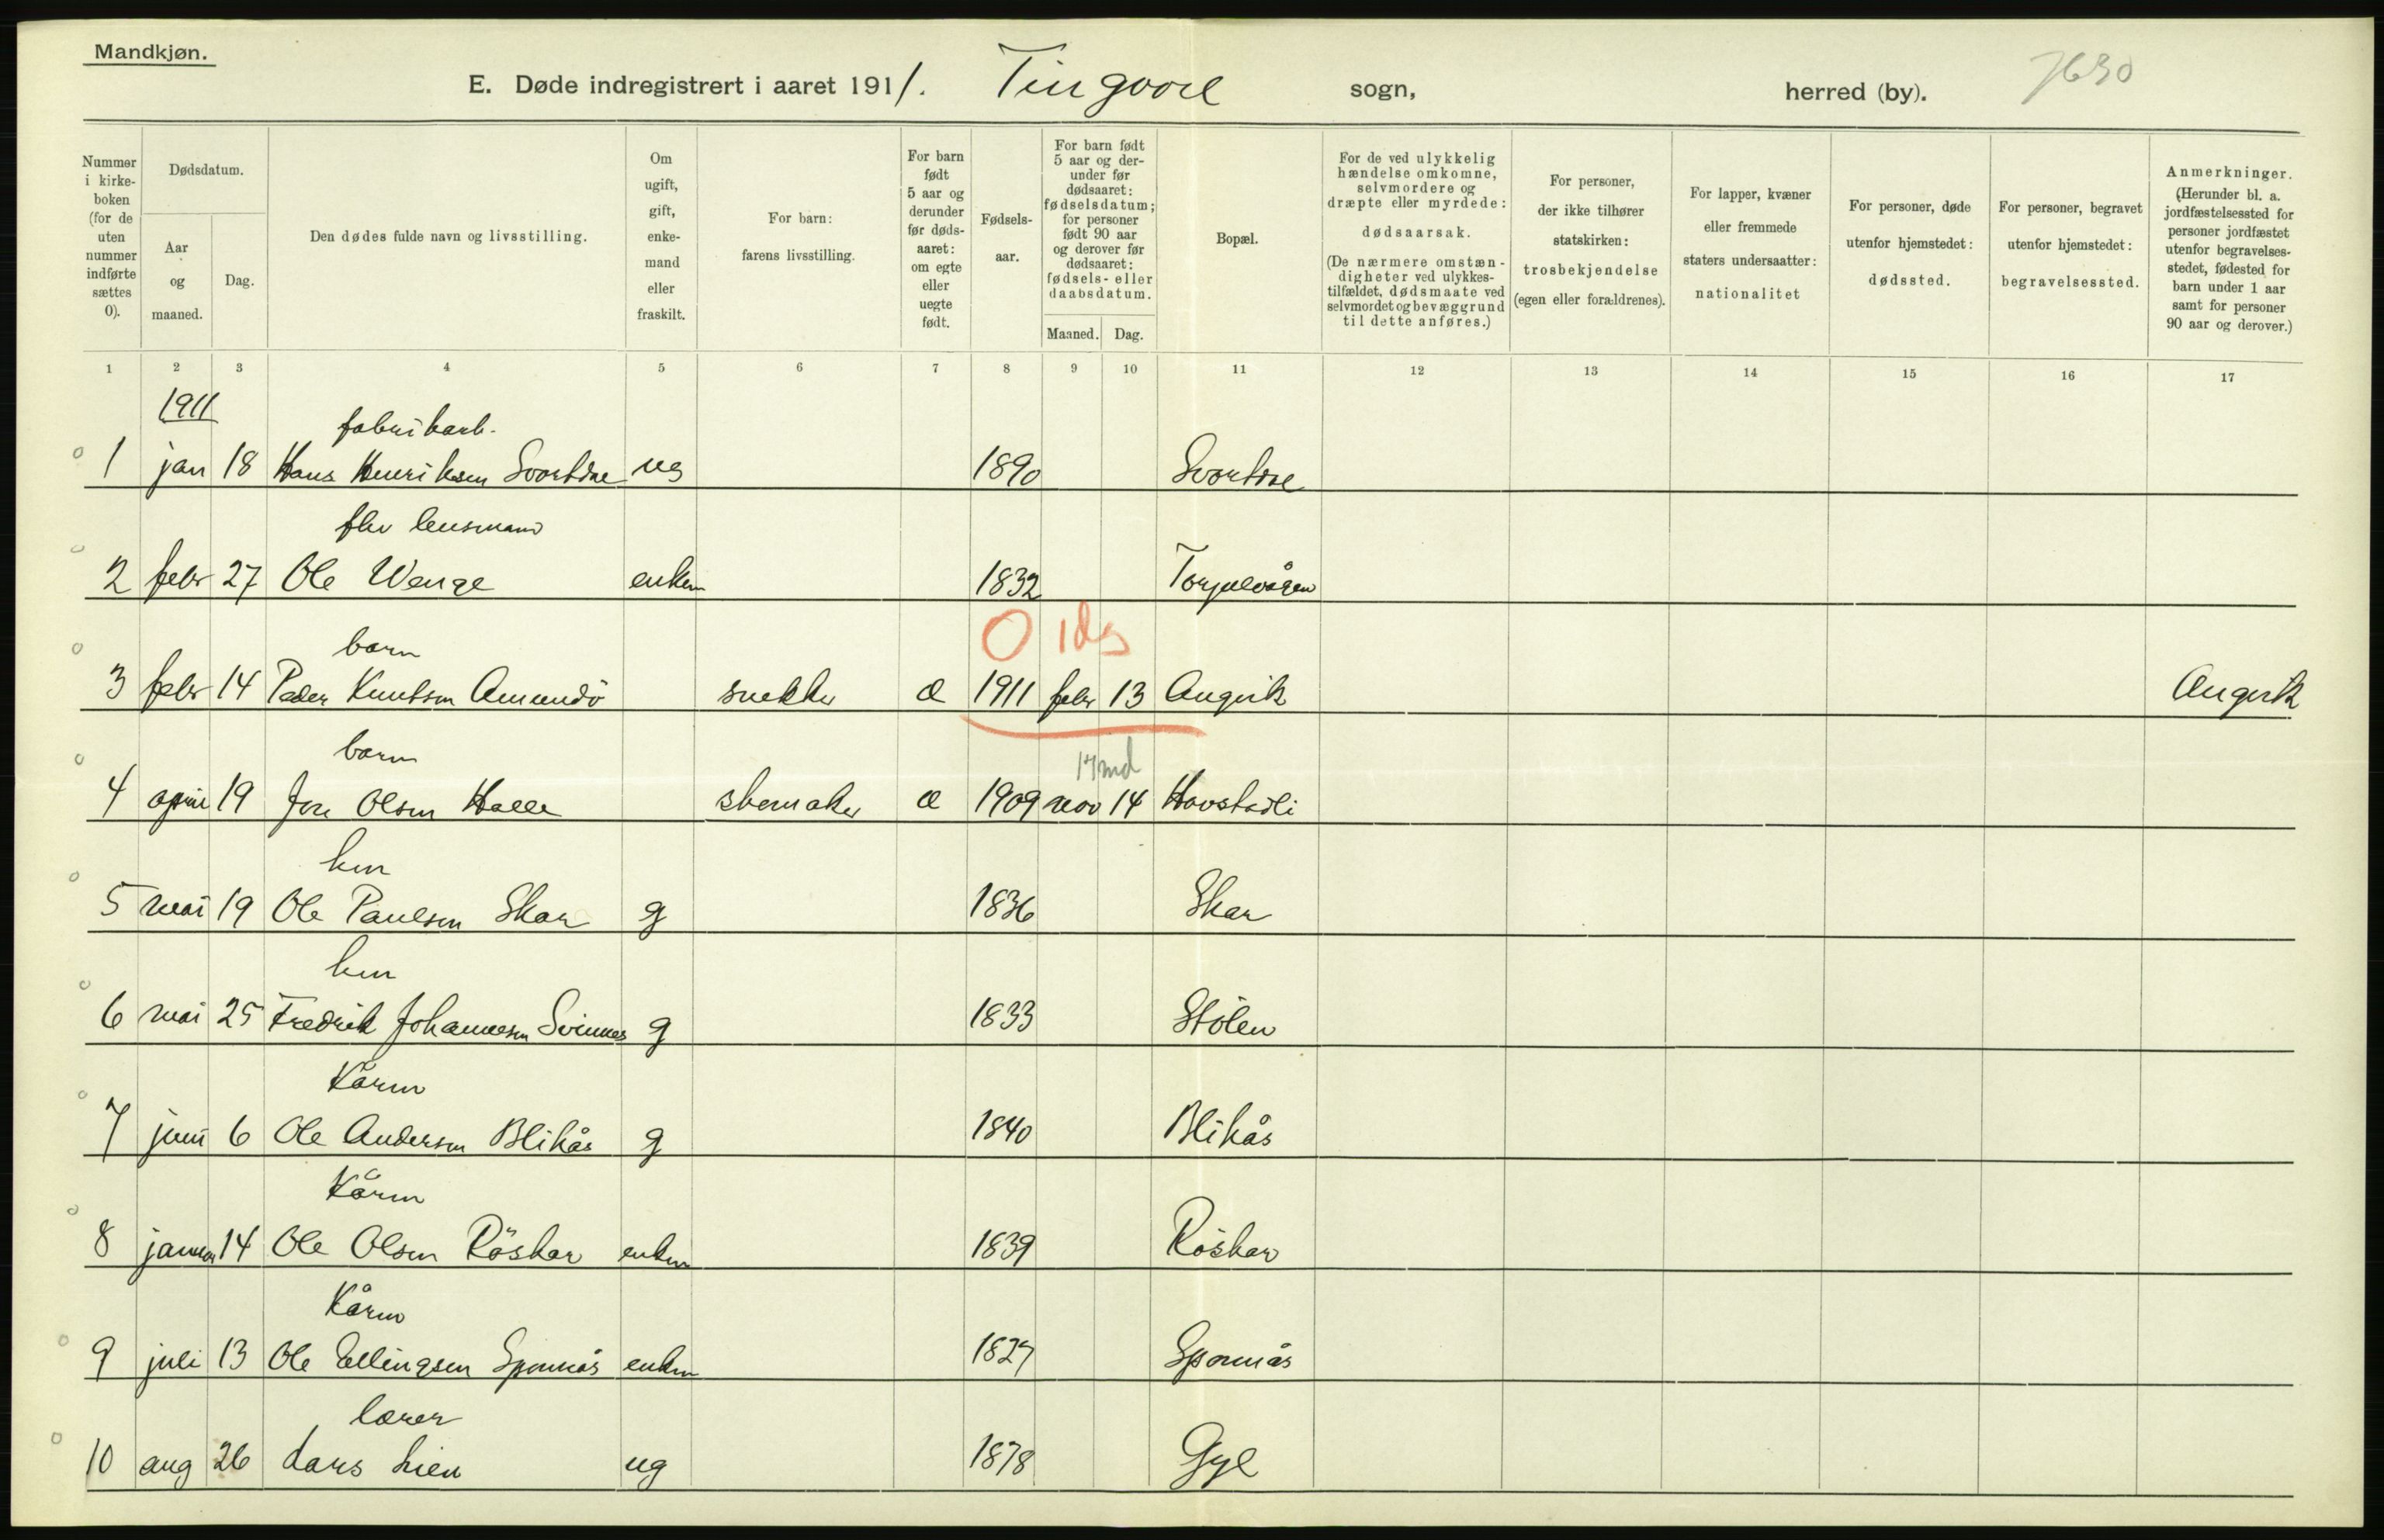 Mandkjøn.
E. Døde indregistrert i aaret 1911. Tingvoll sogn, herred (by). 7630
Nummer i kirkeboken (for de uten nummer indførte sættes 0).
Dødsdatum.
Aar og maaned.
Dag.
Den dødes fulde navn og livsstilling.
Om ugift, gift, enkemand eller fraskilt.
For barn: farens livsstilling.
For barn født 5 aar og derunder før dødsaaret: om egte eller uegte født.
Fødselsaar.
For barn født 5 aar og derunder før dødsaaret: fødselsdatum; for personer født 90 aar og derover før dødsaaret: fødsels- eller daabsdatum.
Maaned. Dag.
Bopæl.
For de ved ulykkelig hændelse omkomne, selvmordere og dræpte eller myrdede: dødsaarsak. (De nærmere omstændigheter ved ulykkestilfældet, dødsmaate ved selvmordet og bevæggrund til dette anføres.)
For personer, der ikke tilhører statskirken: trosbekjendelse (egen eller forældrenes).
For lapper, kvæner eller fremmede staters undersaatter: nationalitet
For personer, døde utenfor hjemstedet: dødssted.
For personer, begravet utenfor hjemstedet: begravelsessted.
Anmerkninger. (Herunder bl. a. jordfæstelsessted for personer jordfæstet utenfor begravelsesstedet, fødested for barn under 1 aar samt for personer 90 aar og derover.)
1 2 3 4 5 6 7 8 9 10 11 12 13 14 15 16 17
1911
fabrikarb.
1 jan 18 Hans Henriksen Svortdal ug 1890 Svortdal
fhv lensmand
2 febr 27 Ole Wenge enkem 1832 Torjulvågen
0 1dg
barn
3 febr 14 Peder Knutsen Amundö snekker æ 1911 febr 13 Angvik Angvik
barn 17 md
4 april 19 Jon Olsen Halle skomaker æ 1909 nov 14 Hovstadli
km
5 mai 19 Ole Paulsen Skar g 1836 Skar
km
6 mai 25 Fredrik Johannesen Svinnes g 1833 Stölen
Kårm
7 juni 6 Ole Andersen Blikås g 1840 Blikås
Kårm
8 januar 14 Ole Olsen Röskar enkm 1839 Röskar
Kårm
9 juli 13 Ole Ellingsen Sponnås enkm 1827 Sponnås
lærer
10 aug 26 Lars Lien ug 1878 Gyl